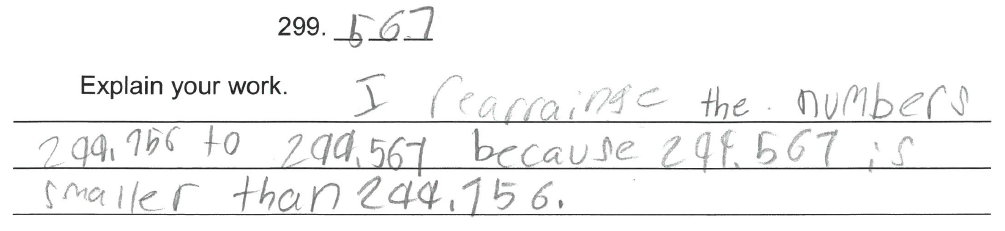 299. 567
Explain your work. I rearrainge the numbers
299.756 to 299.567 because 299.567 is
smaller than 299.756.